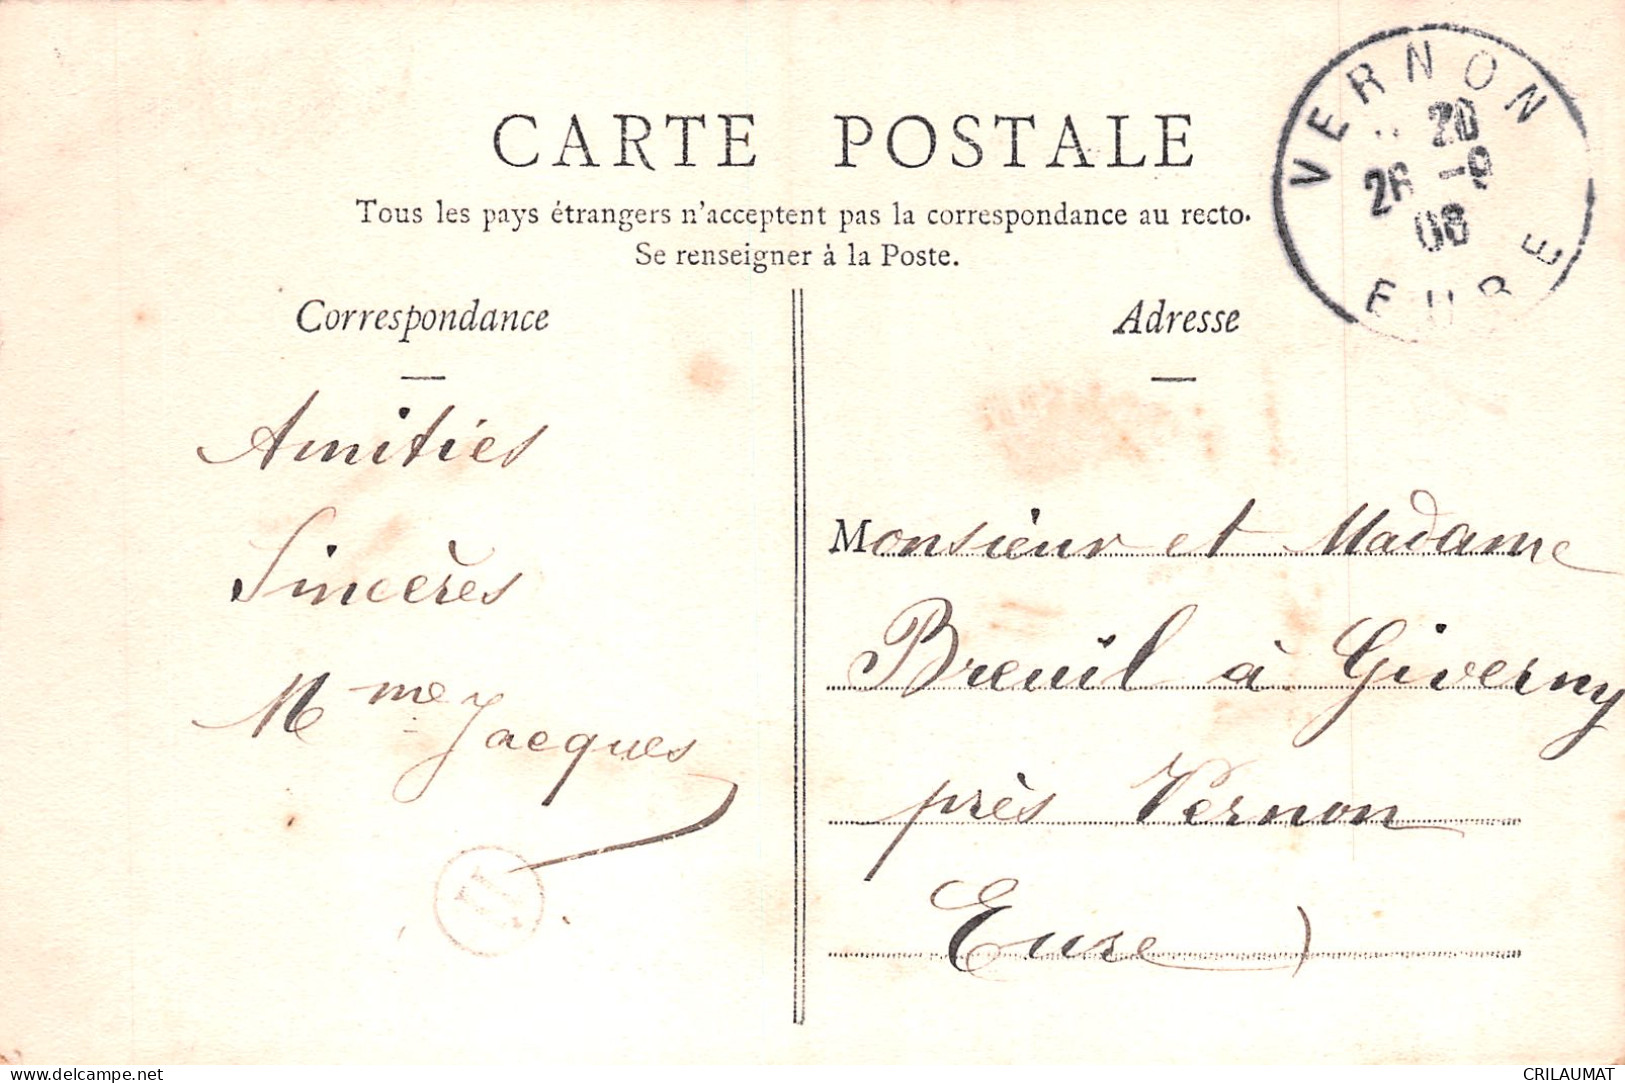 CARTE POSTALE
Tous les pays étrangers n'acceptent pas la correspondance au recto.
Se renseigner à la Poste.
VERNON
20
26 -9
08
EURE
Correspondance
Amitiés
Sincères
Mme Jacques
H
Adresse
Monsieur et Madame
Breuil à Giverny
près Vernon
Eure)
www.delcampe.net
CRILAUMAT